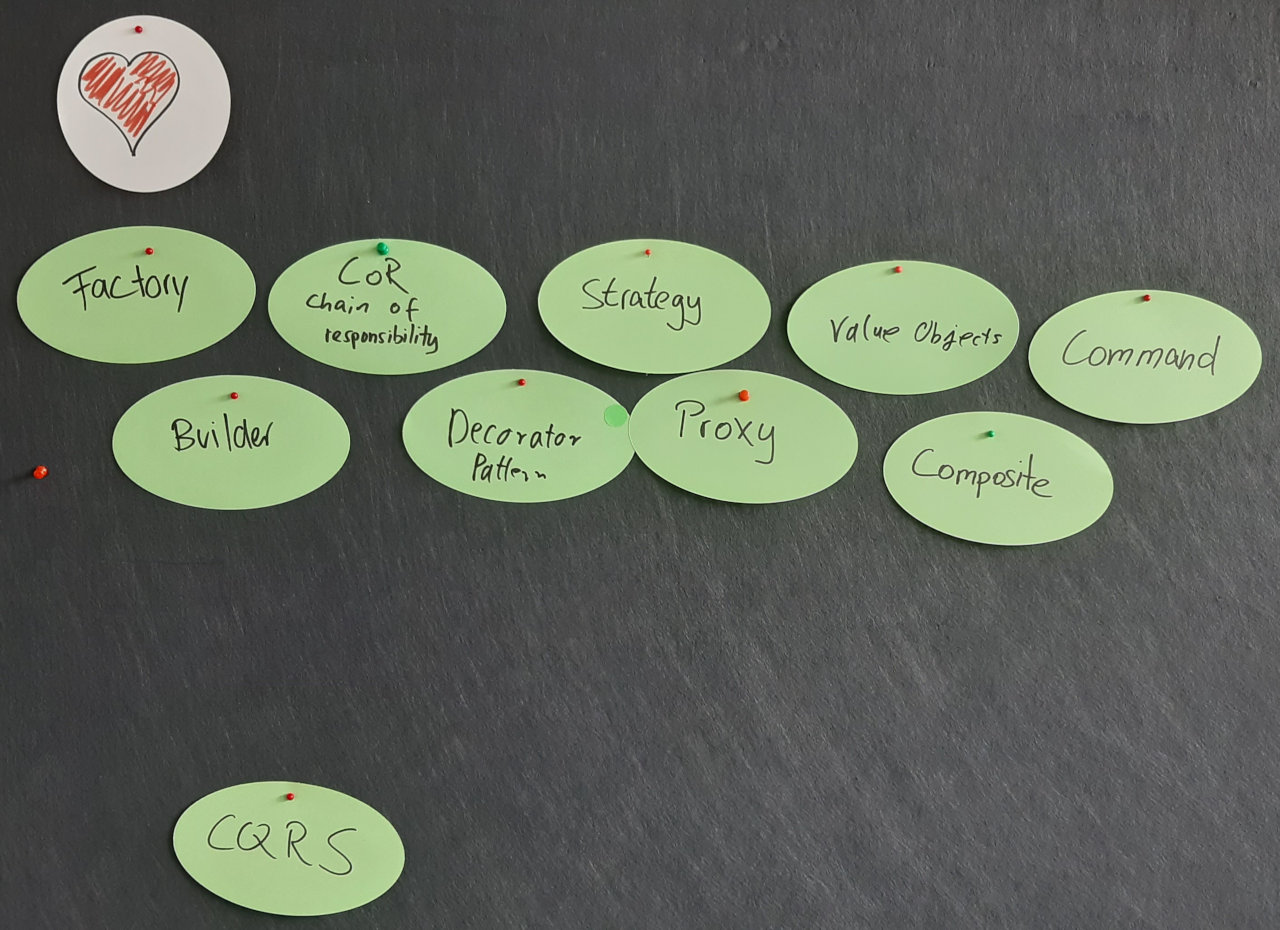 Factory
CoR
Chain of
responsibility
Strategy
Value Objects
Command
Builder
Decorator
Pattern
Proxy
Composite
CQRS